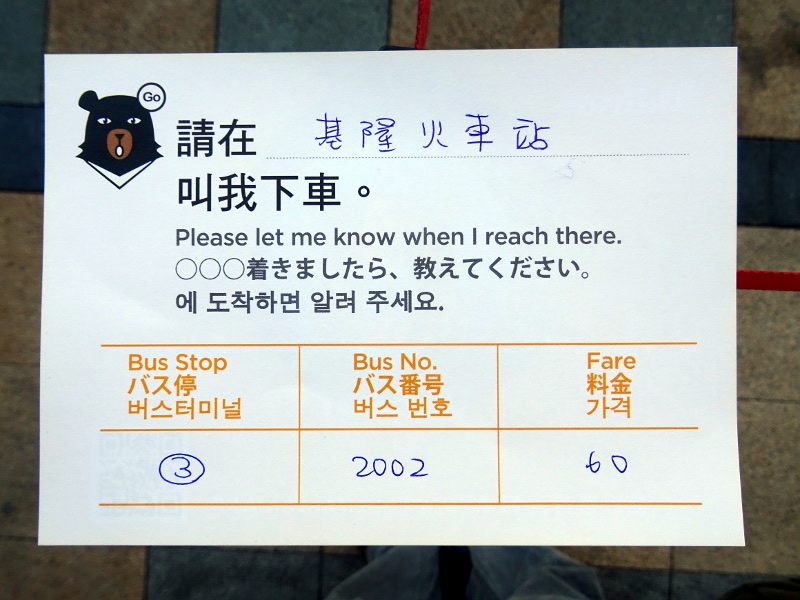 Go
請在 基隆火車站
叫我下車。
Please let me know when I reach there.
○○○着きましたら、教えてください。
에 도착하면 알려 주세요.
Bus Stop Bus No. Fare
バス停 バス番号 料金
버스터미널 버스 번호 가격
③ 2002 60